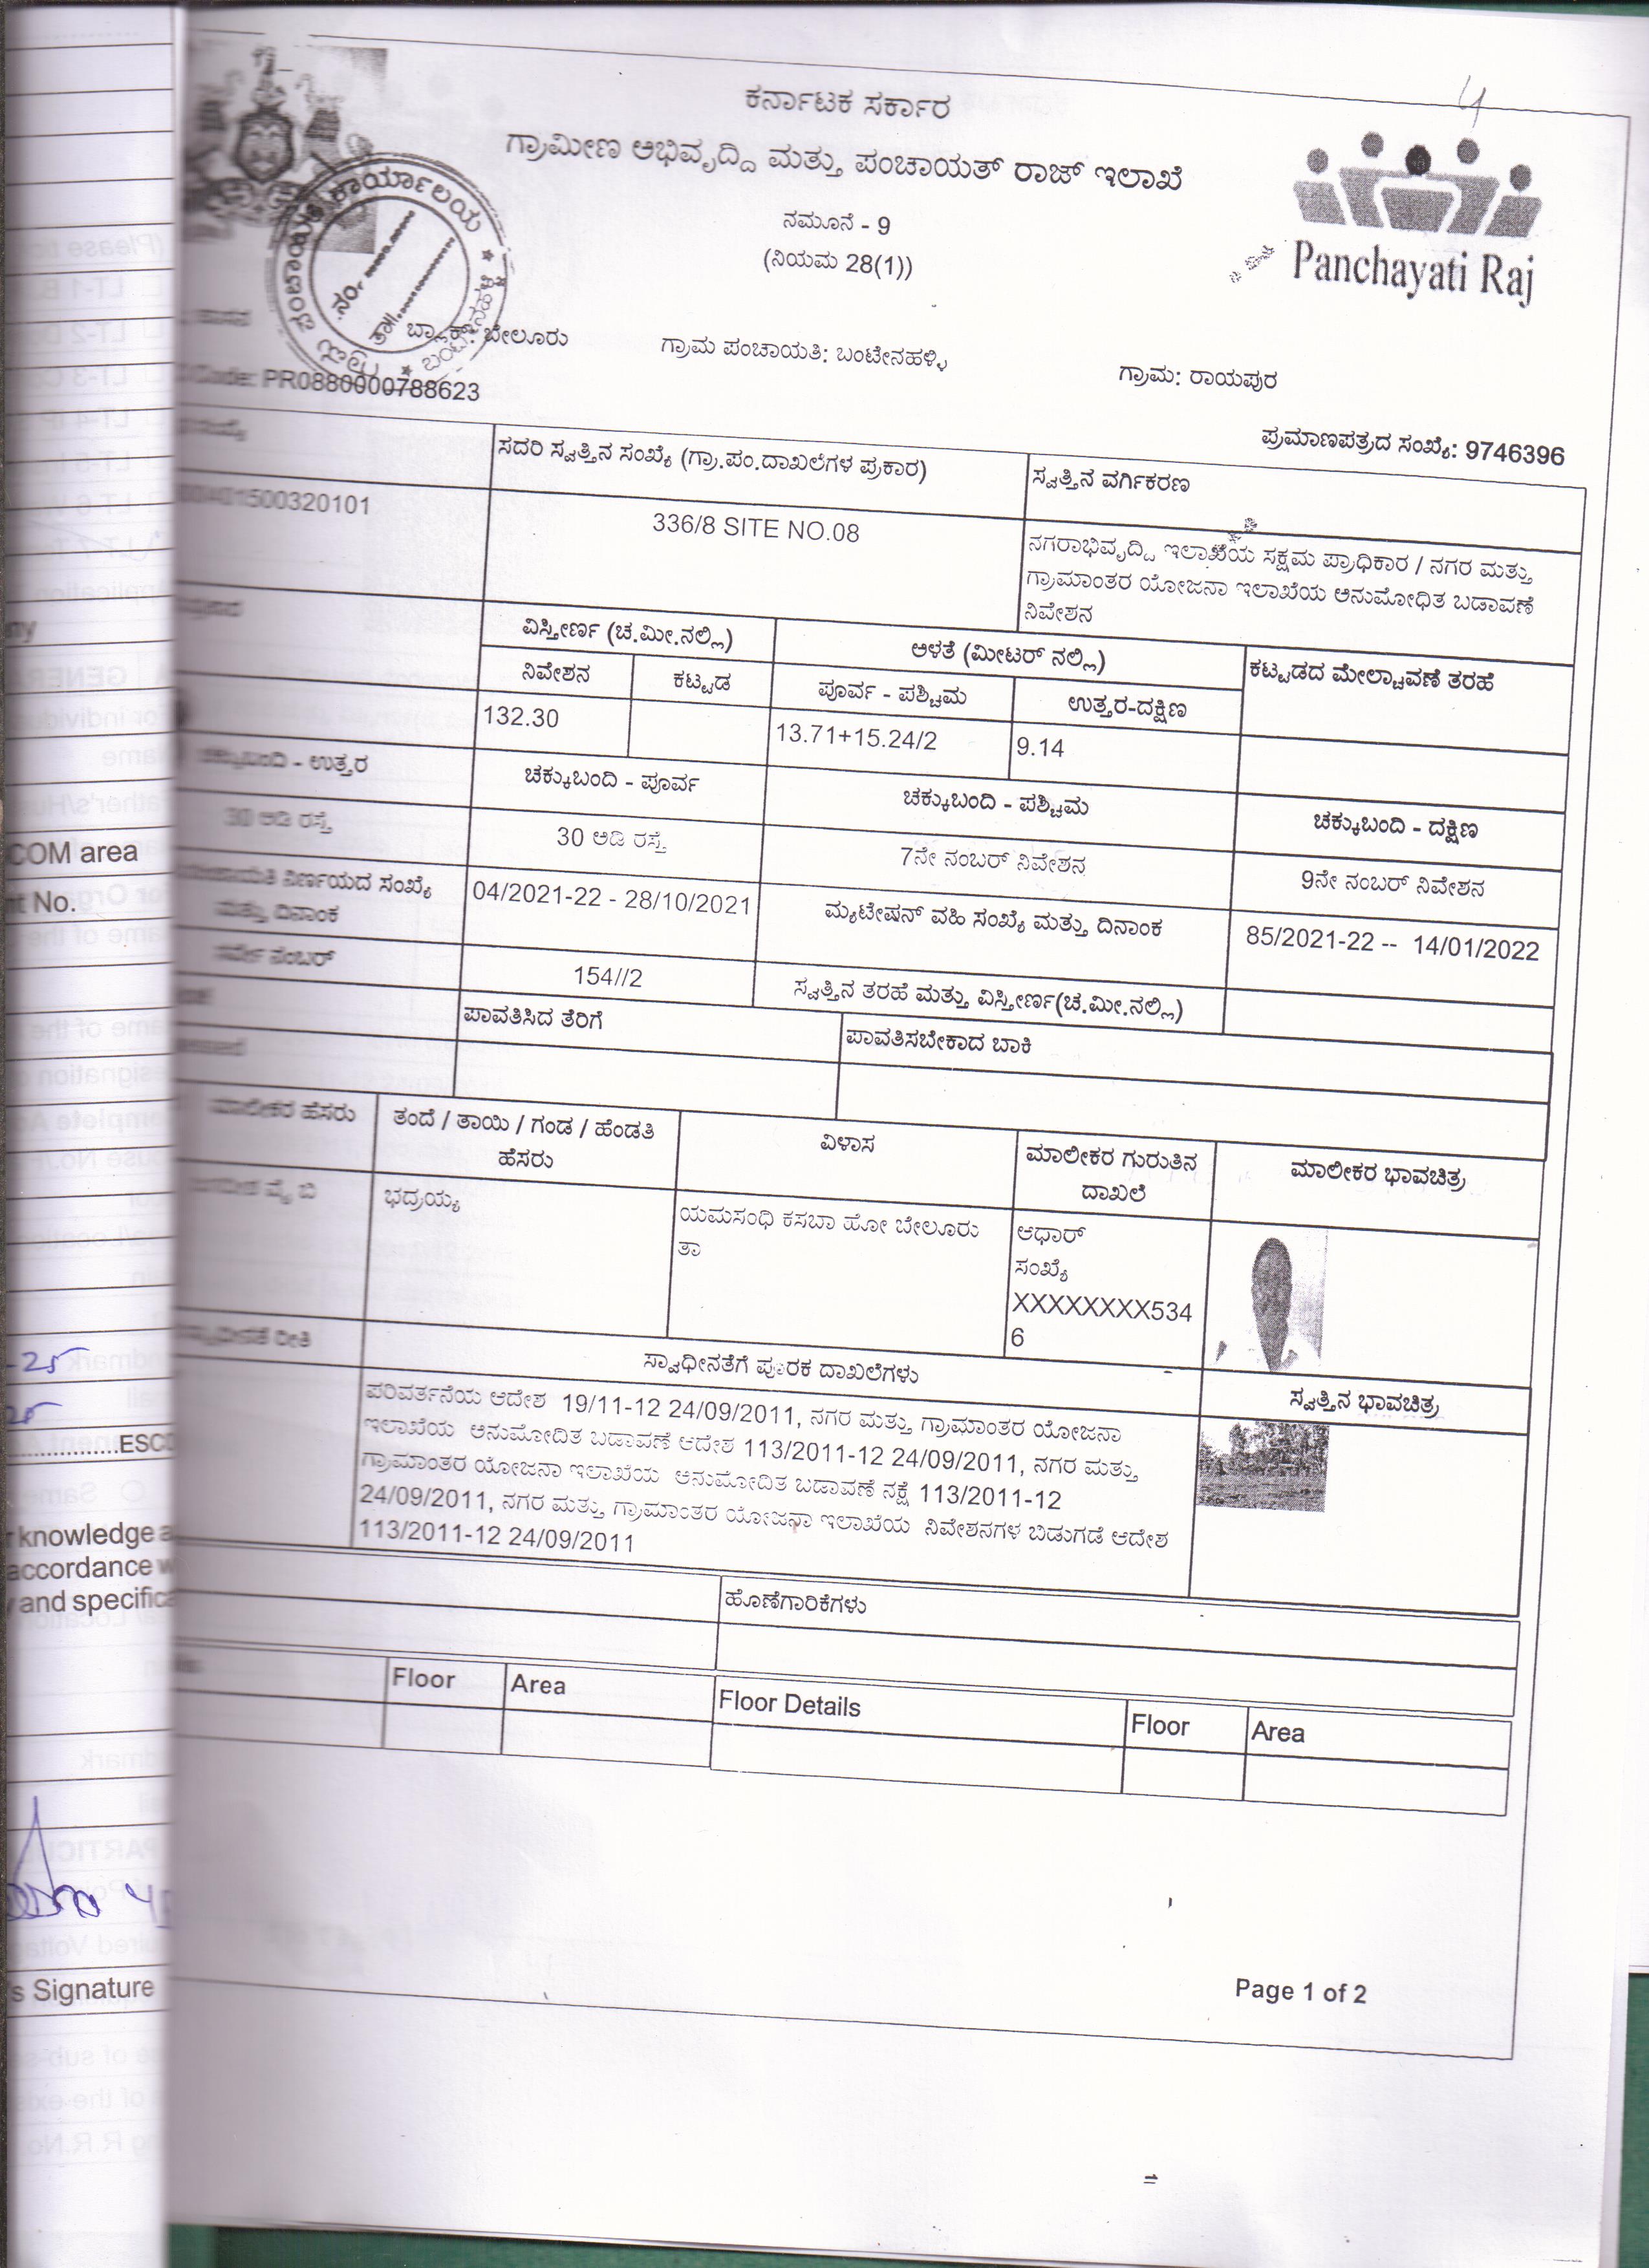 ಕರ್ನಾಟಕ ಸರ್ಕಾರ
ಗ್ರಾಮೀಣ ಅಭಿವೃದ್ದಿ ಮತ್ತು ಪಂಚಾಯತ್ ರಾಜ್ ಇಲಾಖೆ
ನಮೂನೆ - 9
(ನಿಯಮ 28(1))
Panchayati Raj
ಕಾರ್ಯಾಲಯ
ನಂ.
ತಾ॥
ಬ್ಲಾಕ್: ಬೇಲೂರು
ಗ್ರಾಮ ಪಂಚಾಯತಿ: ಬಂಟೇನಹಳ್ಳಿ
ಗ್ರಾಮ: ರಾಯಪುರ
Code: PR0880000788623
ಪ್ರಮಾಣಪತ್ರದ ಸಂಖ್ಯೆ: 9746396
ಸದರಿ ಸ್ವತ್ತಿನ ಸಂಖ್ಯೆ (ಗ್ರಾ.ಪಂ.ದಾಖಲೆಗಳ ಪ್ರಕಾರ)
ಸ್ವತ್ತಿನ ವರ್ಗಿಕರಣ
1500320101
336/8 SITE NO.08
ನಗರಾಭಿವೃದ್ದಿ ಇಲಾಖೆಯ ಸಕ್ಷಮ ಪ್ರಾಧಿಕಾರ / ನಗರ ಮತ್ತು
ಗ್ರಾಮಾಂತರ ಯೋಜನಾ ಇಲಾಖೆಯ ಅನುಮೋಧಿತ ಬಡಾವಣೆ
ನಿವೇಶನ
ವಿಸ್ತೀರ್ಣ (ಚ.ಮೀ.ನಲ್ಲಿ)
ಅಳತೆ (ಮೀಟರ್ ನಲ್ಲಿ)
ಕಟ್ಟಡದ ಮೇಲ್ಚಾವಣೆ ತರಹೆ
ನಿವೇಶನ
ಕಟ್ಟಡ
ಪೂರ್ವ - ಪಶ್ಚಿಮ
ಉತ್ತರ-ದಕ್ಷಿಣ
132.30
13.71+15.24/2
9.14
ಚಕ್ಕುಬಂದಿ - ಉತ್ತರ
ಚಕ್ಕುಬಂದಿ - ಪೂರ್ವ
ಚಕ್ಕುಬಂದಿ - ಪಶ್ಚಿಮ
ಚಕ್ಕುಬಂದಿ - ದಕ್ಷಿಣ
30 ಅಡಿ ರಸ್ತೆ
30 ಅಡಿ ರಸ್ತೆ
7ನೇ ನಂಬರ್ ನಿವೇಶನ
9ನೇ ನಂಬರ್ ನಿವೇಶನ
ನಿರ್ಣಯದ ಸಂಖ್ಯೆ
ಮತ್ತು ದಿನಾಂಕ
04/2021-22 - 28/10/2021
ಮ್ಯುಟೇಷನ್ ವಹಿ ಸಂಖ್ಯೆ ಮತ್ತು ದಿನಾಂಕ
85/2021-22 -- 14/01/2022
ಸರ್ವೇ ನಂಬರ್
154//2
ಸ್ವತ್ತಿನ ತರಹೆ ಮತ್ತು ವಿಸ್ತೀರ್ಣ(ಚ.ಮೀ.ನಲ್ಲಿ)
ಪಾವತಿಸಿದ ತೆರಿಗೆ
ಪಾವತಿಸಬೇಕಾದ ಬಾಕಿ
ಮಾಲೀಕರ ಹೆಸರು
ತಂದೆ / ತಾಯಿ / ಗಂಡ / ಹೆಂಡತಿ
ಹೆಸರು
ವಿಳಾಸ
ಮಾಲೀಕರ ಗುರುತಿನ
ದಾಖಲೆ
ಮಾಲೀಕರ ಭಾವಚಿತ್ರ
ವೈ ಬಿ
ಭದ್ರಯ್ಯ
ಯಮಸಂಧಿ ಕಸಬಾ ಹೋ ಬೇಲೂರು
ತಾ
ಆಧಾರ್
ಸಂಖ್ಯೆ
XXXXXXXX534
6
ರೀತಿ
ಸ್ವಾಧೀನತೆಗೆ ಪೂರಕ ದಾಖಲೆಗಳು
ಸ್ವತ್ತಿನ ಭಾವಚಿತ್ರ
ಪರಿವರ್ತನೆಯ ಆದೇಶ 19/11-12 24/09/2011, ನಗರ ಮತ್ತು ಗ್ರಾಮಾಂತರ ಯೋಜನಾ
ಇಲಾಖೆಯ ಅನುಮೋದಿತ ಬಡಾವಣೆ ಆದೇಶ 113/2011-12 24/09/2011, ನಗರ ಮತ್ತು
ಗ್ರಾಮಾಂತರ ಯೋಜನಾ ಇಲಾಖೆಯ ಅನುಮೋದಿತ ಬಡಾವಣೆ ನಕ್ಷೆ 113/2011-12
24/09/2011, ನಗರ ಮತ್ತು ಗ್ರಾಮಾಂತರ ಯೋಜನಾ ಇಲಾಖೆಯ ನಿವೇಶನಗಳ ಬಿಡುಗಡೆ ಆದೇಶ
113/2011-12 24/09/2011
ಹೊಣೆಗಾರಿಕೆಗಳು
Floor
Area
Floor Details
Floor
Area
Page 1 of 2
COM area
nt No.
-25
25
ESCO
knowledge a
accordance w
and specifica
s Signature